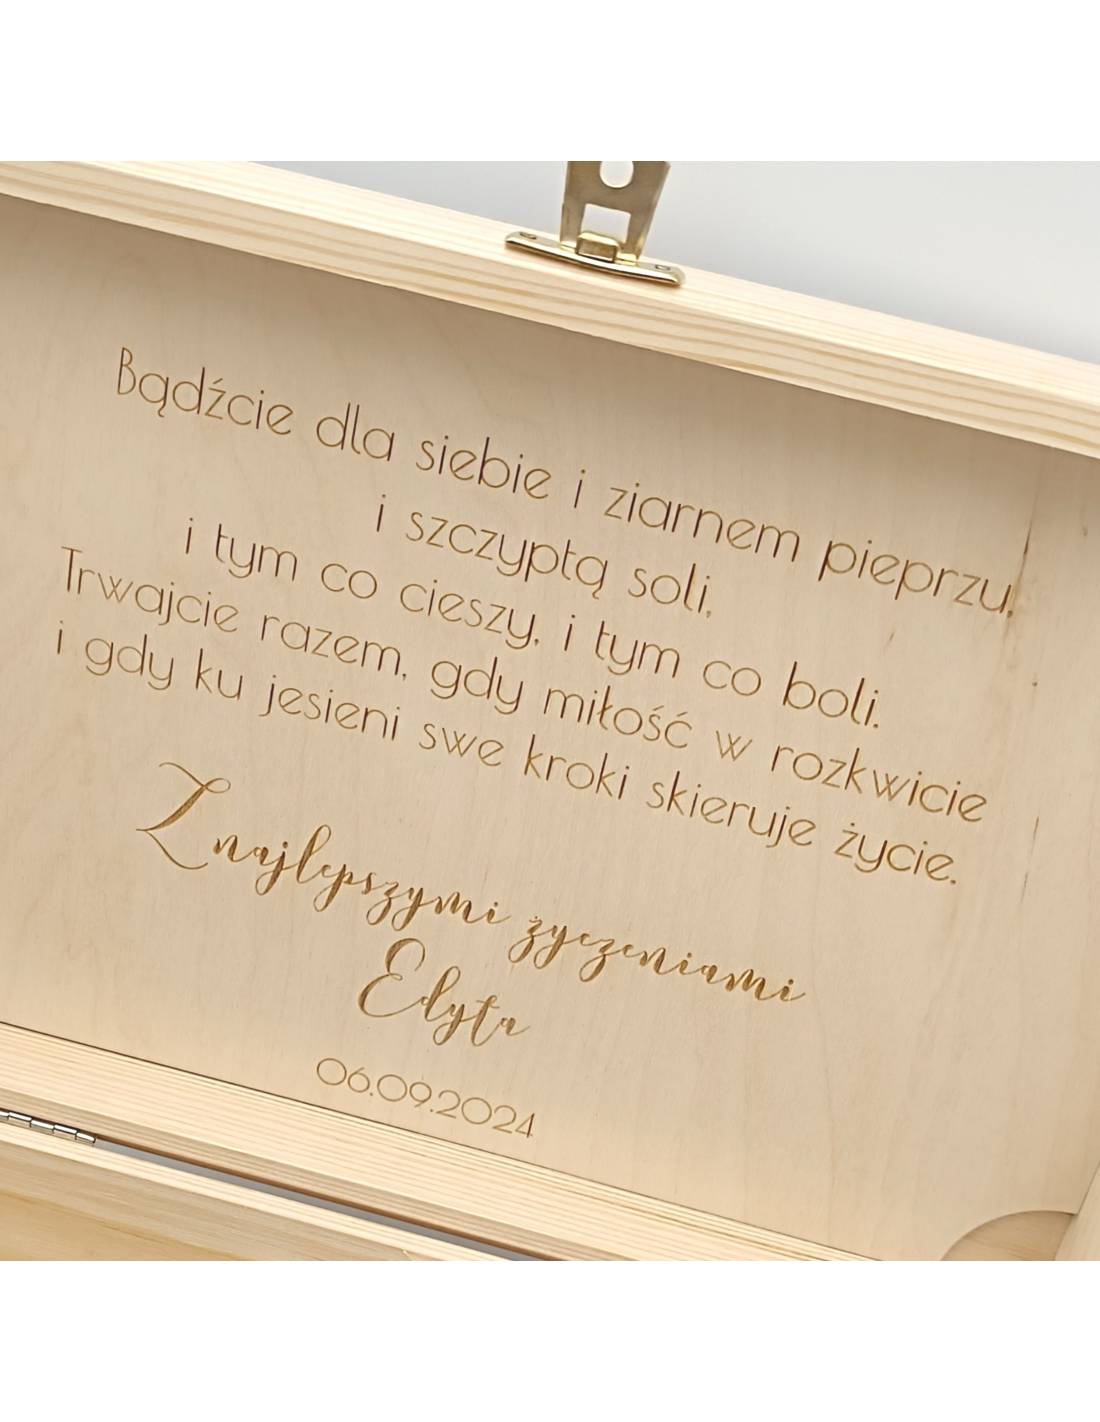 Bądźcie dla siebie i ziarnem pieprzu,
i szczyptą soli,
i tym co cieszy, i tym co boli.
Trwajcie razem, gdy miłość w rozkwicie
i gdy ku jesieni swe kroki skieruje życie.
Z najlepszymi życzeniami
Edyta
06.09.2024